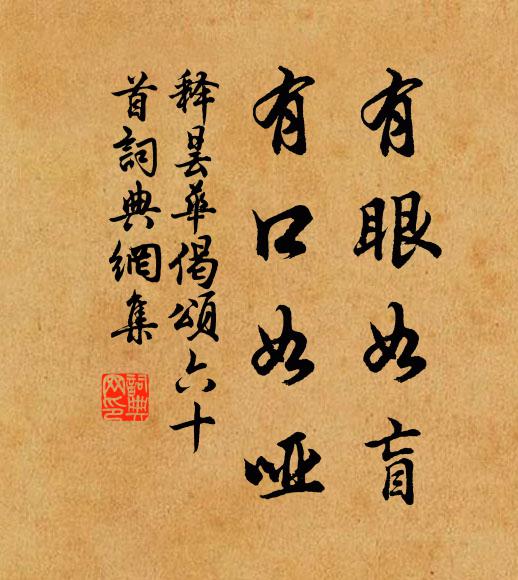 有眼如盲
有口如哑
释昙华偈頌六十
首詞典網集
詞典
网印